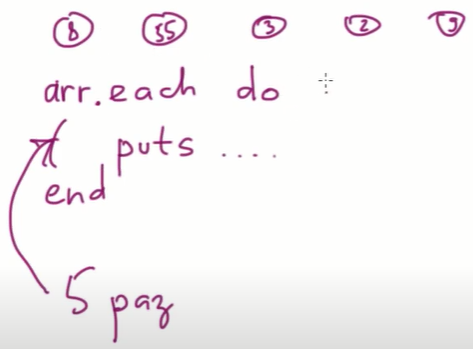 8 55 3 2 9
arr.each do
puts ....
end
5 раз